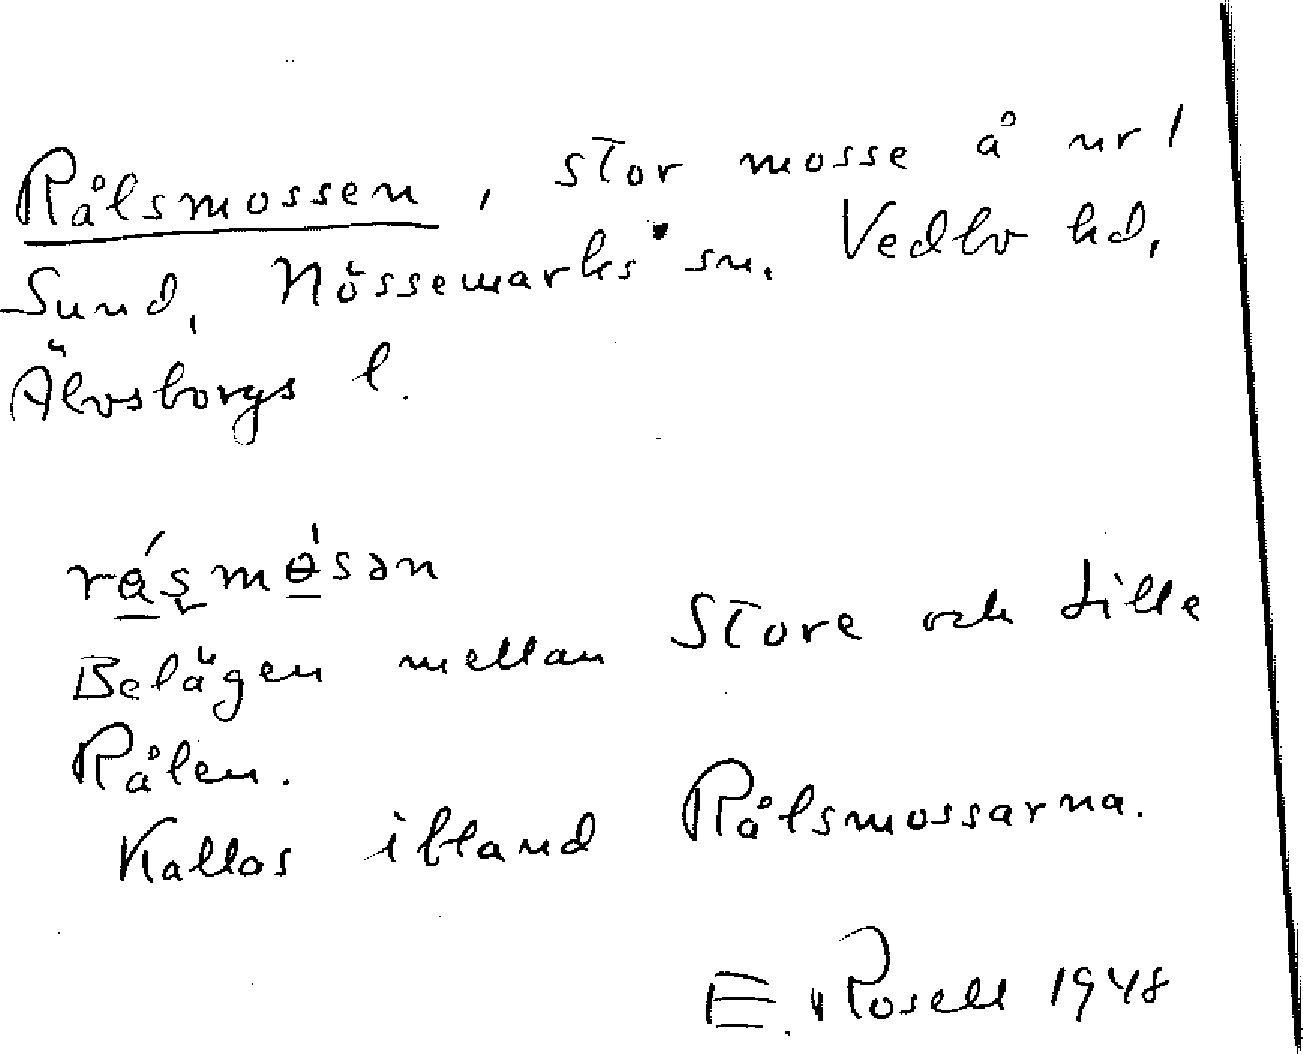 Rålsmossen, stor mosse å nr 1
Sund, Nössemarks sn. Vedbo hd,
Älvsborgs l.
Belägen mellan Store och Lille
Rålen.
Kallas ibland Rålsmossarna.
E. Rosell 1948